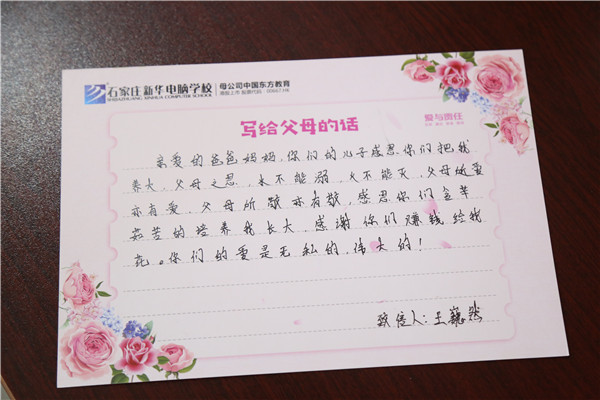 石家庄新华电脑学校
SHIJIAZHUANG XINHUA COMPUTER SCHOOL
母公司中国东方教育
港股上市 股票代码:00667.HK
爱与责任
写给父母的话
亲爱的爸爸妈妈,你们的儿子感恩你们把我
养大,父母之恩,水不能溺,火不能灭,父母所爱
亦有爱,父母所敬亦有敬,感恩你们含辛
茹苦的培养我长大,感谢你们赚钱给我
花。你们的爱是无私的,伟大的!
致信人:王巍然